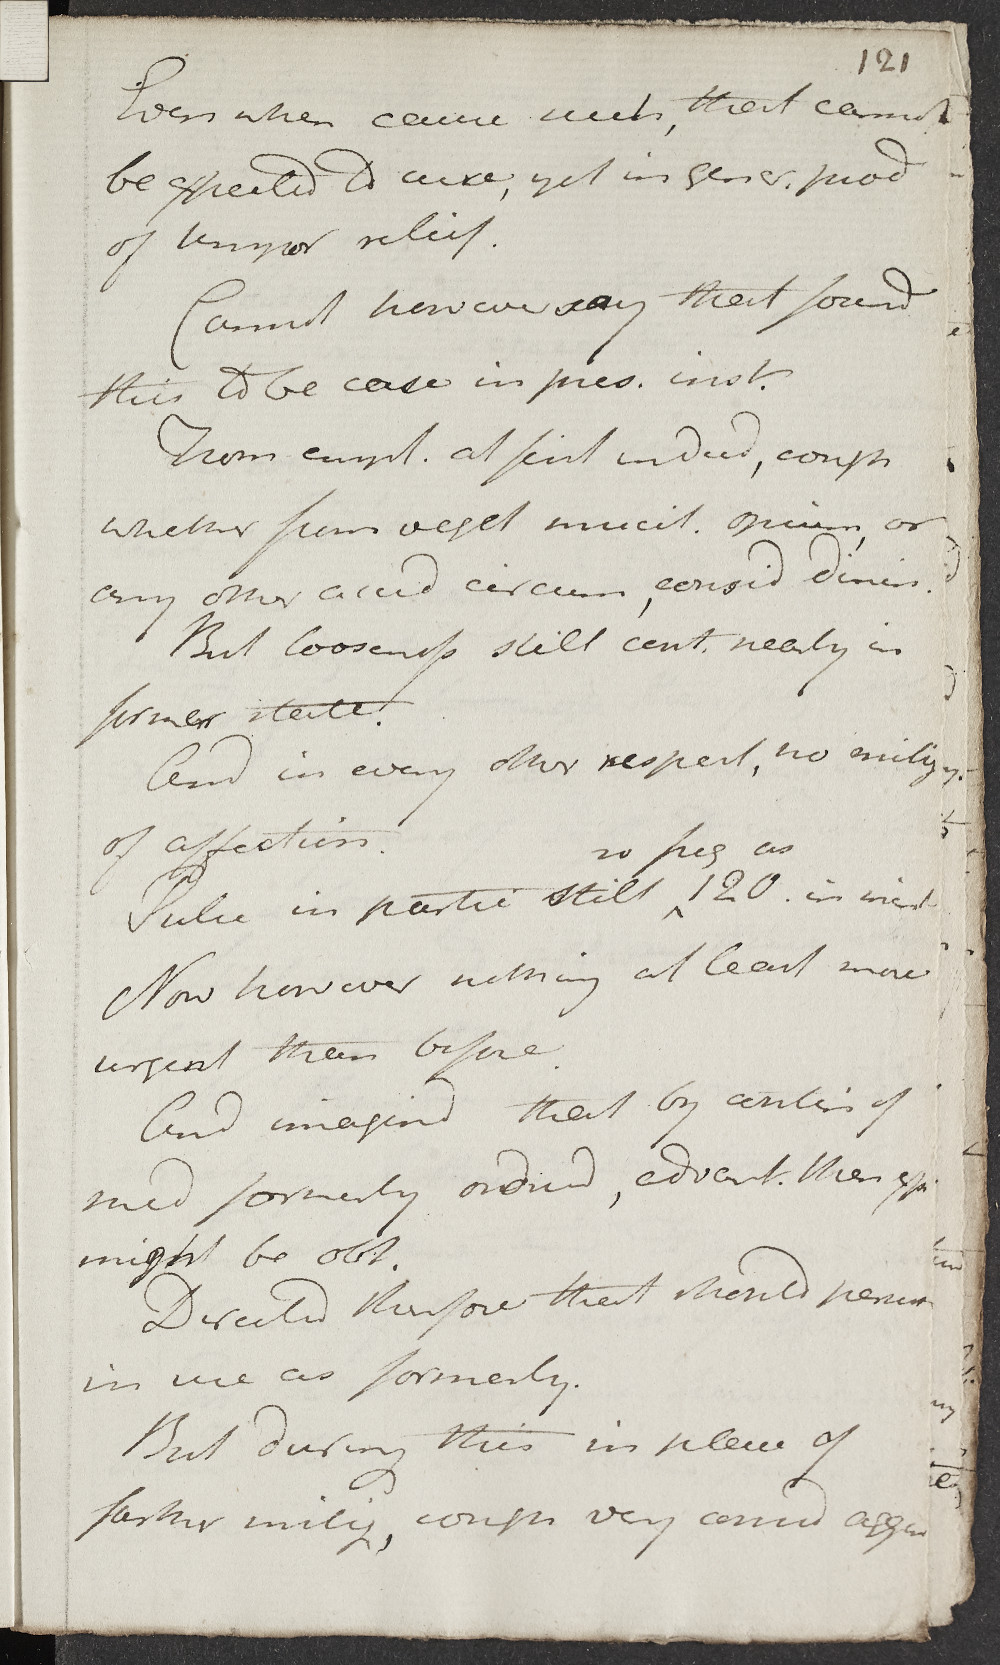 121
Even when came such, that cannot
be expected to cure, yet in gener. prod
of tempor relief.
Cannot however say that found
this to be case in pres. inst.
From empl. at first indeed, cough
whether from veget mucil. opium, or
any other accid circum, consid dimin.
But looseness still cont. nearly in
former state.
And in every other respect, no mitig
of affection.
so freq as
Pulse in partic still 120. in min
Now however nothing at least more
urgent than before.
And imagind that by contin of
med formerly ordered, advant. then
might be obt.
Directed therefore that should persist
in use as formerly.
But during this in place of
farther mitig, cough very consid aggra